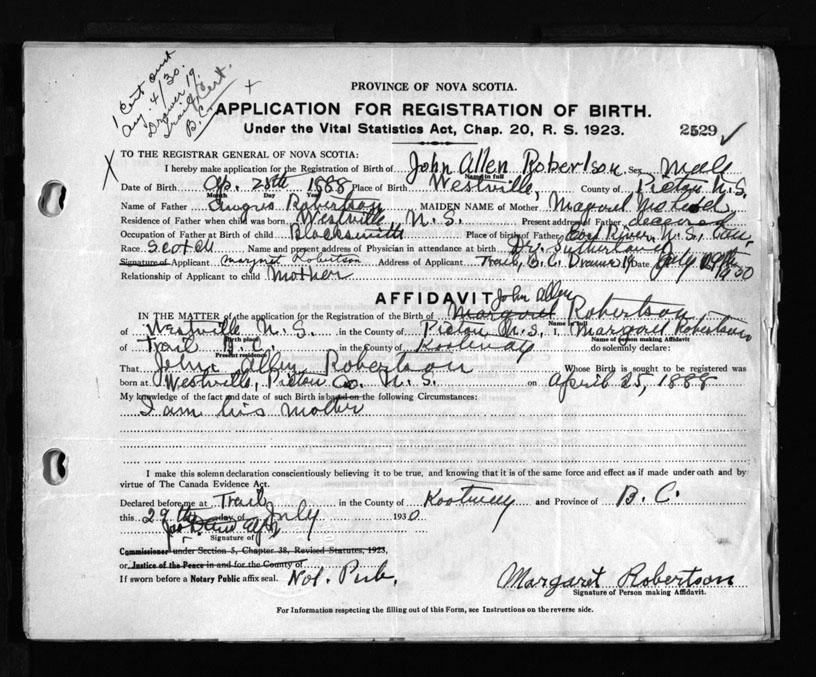 1 Cert sent
Aug. 4/30.
Drawer 19,
Trail
B.C.
PROVINCE OF NOVA SCOTIA.
APPLICATION FOR REGISTRATION OF BIRTH.
Under the Vital Statistics Act, Chap. 20, R. S. 1923.
2529
TO THE REGISTRAR GENERAL OF NOVA SCOTIA:
I hereby make application for the Registration of Birth of John Allen Robertson Sex Male
Name in full
Date of Birth Ap. 25th 1888 Place of Birth Westville, County of Pictou N.S.
Month Day Year
Name of Father Angus Robertson MAIDEN NAME of Mother
Residence of Father when child was born Westville N. S. Present address of Father deceased
Occupation of Father at Birth of child Blacksmith Place of birth of Father East River, N. S., Can.
Race Scotch Name and present address of Physician in attendance at birth Dr. Sutherland
Signature of Applicant Margret Robertson Address of Applicant Trail, B.C. Drawer 19 Date July 29th 1930
Relationship of Applicant to child Mother
AFFIDAVIT
John Allen
IN THE MATTER of the application for the Registration of the Birth of Margaret Robertson
Name in full
of Westville N. S. in the County of Pictou N.S. I, Margaret Robertson
Birth place Name of person making Affidavit
of Trail B. C. in the County of Kootenay do solemnly declare:
Present residence
That John Allen Robertson Whose Birth is sought to be registered was
born at Westville, Pictou Co. N. S. on April 25, 1888
My knowledge of the fact and date of such Birth is based on the following Circumstances:
I am his mother
I make this solemn declaration conscientiously believing it to be true, and knowing that it is of the same force and effect as if made under oath and by
virtue of The Canada Evidence Act.
Declared before me at Trail in the County of Kootenay and Province of B. C.
this 29th day of July 1930
Signature of
Commissioner under Section 5, Chapter 38, Revised Statutes, 1923,
or Justice of the Peace in and for the County of
If sworn before a Notary Public affix seal. Not. Pub.
Margaret Robertson
Signature of Person making Affidavit.
For Information respecting the filling out of this Form, see Instructions on the reverse side.